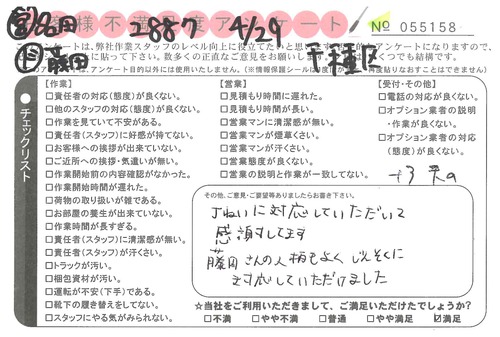 お客様不満足度アンケート
営 名円 2887 4/29
№ 055158
日 藤田
千種区
このアンケートは、弊社作業スタッフのレベル向上に役立てたいと思います
に貼って下さい。数多くの正直なご意見をお願いします
【作業】
□責任者の対応(態度)が良くない。
□他のスタッフの対応(態度)が良くない。
□作業を見ていて不安がある。
□責任者(スタッフ)に好感が持てない。
□お客様への挨拶が出来ていない。
□ご近所への挨拶・気遣いが無い。
□作業開始前の内容確認がなかった。
□作業開始時間が遅れた。
□荷物の取り扱いが雑である。
□お部屋の養生が出来ていない。
□作業時間が長すぎる。
□責任者(スタッフ)に清潔感が無い。
□責任者(スタッフ)が汗くさい。
□トラックが汚い。
□梱包資材が汚い。
□運転が不安(下手)である。
□靴下の履き替えをしてない。
□スタッフにやる気がみられない。
【営業】
□見積もり時間に遅れた。
□見積もり時間が長い。
□営業マンに清潔感が無い。
□営業マンが煙草くさい。
□営業マンが汗くさい。
□営業態度が良くない。
□営業の説明と作業が一致してない。
【受付・その他】
□電話の対応が良くない。
□オプション業者の説明
・作業が良くない。
□オプション業者の対応
(態度)が良くない。
チェックリスト
その他、ご意見・ご要望等ありましたらお書き下さい。
丁ねいに対応していただいて
感謝してます
藤田さんの人柄もよく じんそくに
対応していただけました
☆当社をご利用いただきまして、ご満足いただけたでしょうか?
□不満 □やや不満 □普通 □やや満足 ☑満足